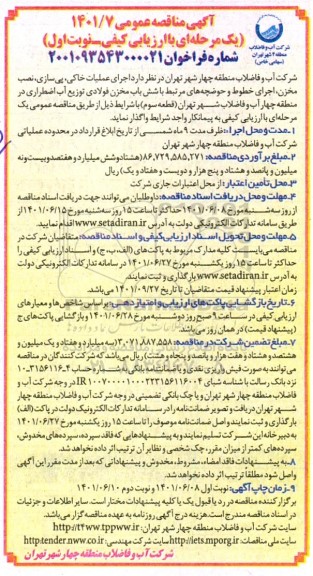 آگهی مناقصه عمومی ۱۴۰۱/۷
(یک مرحله‌ای با ارزیابی کیفی_نوبت اول)
شماره فراخوان ۲۰۰۱۰۹۳۵۴۳۰۰۰۰۲۱
شرکت آب و فاضلاب
منطقه ۴ شهر تهران
(سهامی خاص)
شرکت آب و فاضلاب منطقه چهار شهر تهران در نظر دارد اجرای عملیات خاکی، پی‌سازی، نصب
مخزن، اجرای خطوط و حوضچه‌های مرتبط با شش باب مخزن فولادی توزیع آب اضطراری در
منطقه چهار آب و فاضلاب شهر تهران (قطعه سوم) با شرایط ذیل از طریق مناقصه عمومی یک
مرحله‌ای با ارزیابی کیفی به پیمانکار واجد شرایط واگذار نماید.
۱_مدت و محل اجرا: ظرف مدت ۹ ماه شمسی از تاریخ ابلاغ قرارداد در محدوده عملیاتی
شرکت آب و فاضلاب منطقه چهار شهر تهران
۲_مبلغ برآوردی مناقصه: ۸۶,۷۲۹,۵۸۵,۲۷۱ (هشتاد و شش میلیارد و هفتصد و بیست و نه
میلیون و پانصد و هشتاد و پنج هزار و دویست و هفتاد و یک) ریال
۳_محل تأمین اعتبار: از محل اعتبارات جاری شرکت
۴_مهلت و محل دریافت اسناد مناقصه: داوطلبان می‌توانند جهت دریافت اسناد مناقصه
از روز سه‌شنبه مورخ ۱۴۰۱/۰۶/۰۸ حداکثر تا ساعت ۱۵ روز سه‌شنبه مورخ ۱۴۰۱/۰۶/۱۵ از
طریق سامانه تدارکات الکترونیکی دولت به آدرس www.setadiran.ir اقدام نمایید.
۵_مهلت و محل تحویل اسناد ارزیابی کیفی و اسناد مناقصه: متقاضیان شرکت در
مناقصه می‌بایست کلیه مدارک مربوط به پاکت‌های (الف، ب، ج) و اسناد ارزیابی کیفی را
حداکثر تا ساعت ۱۵ روز یکشنبه مورخ ۱۴۰۱/۰۶/۲۷ در سامانه تدارکات الکترونیکی دولت
به آدرس www.setadiran.ir بارگذاری و ثبت نمایند.
زمان اعتبار پیشنهاد قیمت متقاضیان تا تاریخ ۱۴۰۱/۰۹/۲۷ می‌باشد.
۶_تاریخ بازگشایی پاکت‌های ارزیابی و امتیازدهی: براساس شاخص‌ها و معیارهای
ارزیابی کیفی در ساعت ۹ صبح روز دوشنبه مورخ ۱۴۰۱/۰۶/۲۸ و بازگشایی پاکت‌های ج
(پیشنهاد قیمت) در همان روز می‌باشد.
۷_مبلغ تضمین شرکت در مناقصه: ۳,۰۷۱,۸۸۷,۵۵۸ (سه میلیارد و هفتاد و یک میلیون و
هشتصد و هشتاد و هفت هزار و پانصد و پنجاه و هشت) ریال می‌باشد که شرکت‌کنندگان در مناقصه
می‌توانند به صورت فیش واریزی نقدی و یا ضمانتنامه بانکی به شماره حساب ۴_۳۱۵۶۱۱۶_۱۰
نزد بانک رسالت با شناسه شبای IR در وجه شرکت آب و
فاضلاب منطقه چهار شهر تهران و یا چک بانکی تضمینی در وجه شرکت آب و فاضلاب منطقه چهار
شهر تهران دریافت و تصویر ضمانت‌نامه را در سامانه تدارکات الکترونیک دولت در پاکت (الف)
بارگذاری و ثبت نمایند و اصل ضمانت‌نامه موصوف را تا ساعت ۱۵ روز یکشنبه مورخ ۱۴۰۱/۰۶/۲۷
به دبیرخانه این شرکت تسلیم نمایند و به پیشنهادهایی که فاقد سپرده، سپرده‌های مخدوش،
سپرده‌های کمتر از میزان مقرر، چک شخصی و نظایر آن ترتیب اثر داده نخواهد شد.
۸_به پیشنهادات فاقد امضاء، مشروط، مخدوش و پیشنهاداتی که بعد از مدت مقرر این آگهی
واصل شود مطلقاً ترتیب اثر داده نخواهد شد.
۹_زمان چاپ آگهی: نوبت اول ۱۴۰۱/۰۶/۰۸ و نوبت دوم ۱۴۰۱/۰۶/۱۰
برگزار کننده مناقصه در رد یا قبول یک یا کلیه پیشنهادات مختار است. سایر اطلاعات و جزئیات
در اسناد مناقصه مندرج است. هزینه درج آگهی روزنامه به عهده مناقصه‌گزار می‌باشد.
سایت شرکت آب و فاضلاب منطقه چهار شهر تهران: http://t4ww.tppww.ir
سایت ملی مناقصات: http://iets.mporg.ir سایت شرکت مهندسی: http:tender.nww.co.ir
شرکت آب و فاضلاب منطقه چهار شهر تهران